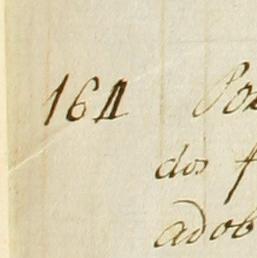 164 Po
dos f
adob